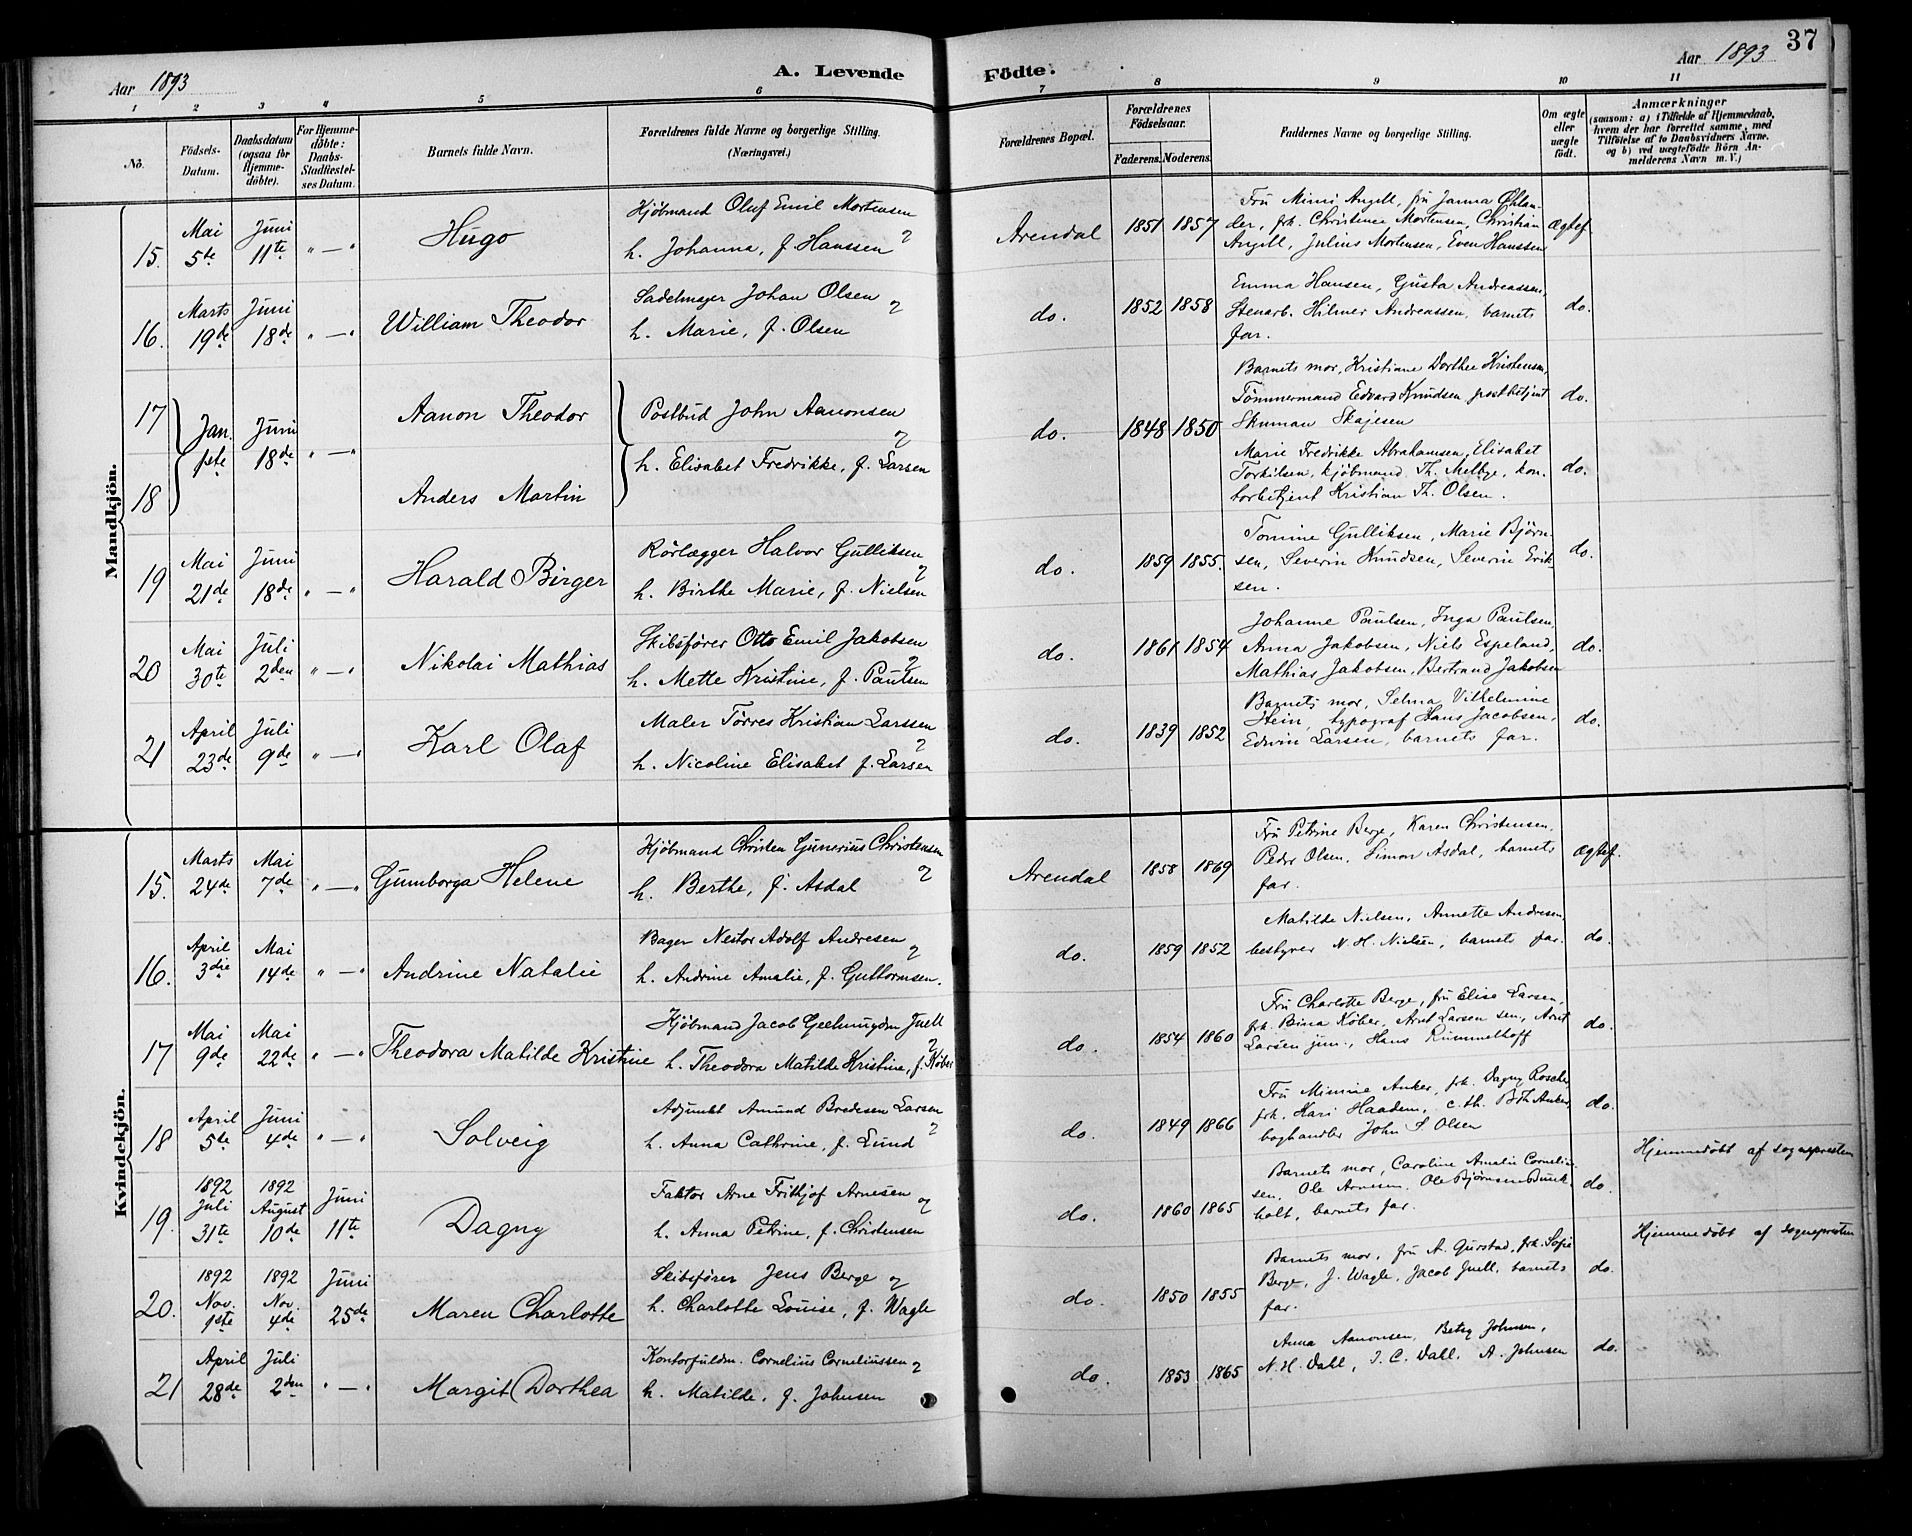 Aar 1893
A. Levende Födte.
Aar 1893
37
1 2 3 4 5 6 7 8 9 10 11
Nö.
Födsels-Datum.
Daabsdatum (ogsaa for Hjemme-döbte).
For Hjemme-döbte: Daabs-Stadfæstel-ses Datum.
Barnets fulde Navn.
Forældrenes fulde Navne og borgerlige Stilling.
(Næringsvei.)
Forældrenes Bopæl.
Forældrenes Födselsaar.
Faderens. Moderens.
Faddernes Navne og borgerlige Stilling.
Om ægte eller uægte födt.
Anmærkninger
(saasom: a) i Tilfælde af Hjemmedaab, hvem der har forrettet samme, med Tilföielse af to Daabsvidners Navne. og b) ved uægtefödte Börn An-melderens Navn m. V.)
Mandkjön.
15. Mai 5te Juni 11te " — " Hugo
Kjöbmand Oluf Emil Mortensen og
h. Johanna, f. Hanssen
Arendal 1851 1857
Fru Mimi Angell, fru Janna Øhlan-
der, frk. Christence Mortensen, Christian
Angell, Julius Mortensen, Even Hanssen
Ægtef.
16. Marts 19de Juni 18de " — " William Theodor
Sadelmager Johan Olsen og
h. Marie, f. Olsen
do. 1852 1858
Emma Hansen, Gusta Andreassen,
Stenarb. Hilmer Andreassen, barnets
far.
do.
17 Jan. 1ste Juni 18de " — " Aanon Theodor
Postbud John Aanonsen og
h. Elisabet Fredrikke, f. Larsen
do. 1848 1850
Barnets mor, Kristiane Dorthee Kristensen,
Tömmermand Edvard Knudsen postbetjent
Skuman Skajesen
do.
18 Anders Martin
Marie Fredrikke Abrahamsen, Elisabet
Torkilsen, kjöbmand Th. Melbye, kon-
torbetjent Kristian Th. Olsen.
do.
19 Mai 21de Juni 18de " — " Harald Birger
Rörlægger Halvor Gulliksen og
h. Birthe Marie, f. Nielsen
do. 1859 1855.
Tomine Gulliksen, Marie Bjørn-
sen, Severin Knudsen, Severin Erik
sen.
do.
20 Mai 30te Juli 2den " — " Nikolai Mathias
Skibsförer Otto Emil Jakobsen og
h. Mette Kristine, f. Paulsen
do. 1861 1854
Johanne Paulsen, Inga Paulsen,
Anna Jakobsen, Niels Espeland,
Mathias Jakobsen, Bertrand Jakobsen
do.
21 April 23de Juli 9de " — " Karl Olaf
Maler Tørres Kristian Larssen og
h. Nicoline Elisabet f. Larsen
do. 1839 1852
Barnets mor, Selma Vilhelmine
Stein, typograf Hans Jacobsen,
Edvin Larsen, barnets far.
do.
Kvindekjön.
15. Marts 24de Mai 7de " — " Gunnborga Helene
Kjöbmand Christen Gunerius Christensen og
h. Berthe, f. Asdal
Arendal 1858 1869
Fru Petrine Berge, Karen Christensen,
Peder Olsen, Simon Asdal, barnets
far.
Ægtef.
16. April 3die Mai 14de " — " Andrine Natalie
Bager Nestor Adolf Andresen og
h. Andrine Amalie, f. Guttormsen.
do. 1859 1852
Matilde Nielsen, Annette Andresen,
bestyrer N. H. Nielsen, barnets far.
do.
17 Mai 9de Mai 22de " — " Theodora Matilde Kristine
Kjöbmand Jacob Juell og
h. Theodora Matilde Kristine, f. Køber
do. 1854 1860
Fru Charlotte Berge, fru Elise Larsen,
frk. Bina Köber, Arnt Larsen sen, Arnt
Larsen jun., Hans Rummelhoff
do.
18 April 5te Juni 4de " — " Solveig
Adjunkt Amund Bredesen Larsen og
h. Anna Cathrine, f. Lund
do. 1849 1866
Fru Minnie Anker, frk. Dagny Roscher,
frk. Kari Haadem, c. th. Anker,
boghandler John S. Olsen
do.
19. 1892 Juli 31te 1892 August 10de Juni 11te Dagny
Faktor Arne Frithjof Arnesen og
h. Anna Petrine, f. Christensen
do. 1860 1865
Barnets mor, Caroline Amalie Corneliu-
sen, Ole Arnesen, Ole Bjørnsen Bunk-
holt, barnets far.
do.
Hjemmedøbt af sognepresten
20. 1892 Nov. 1ste 1892 Nov. 4de Juni 25de Maren Charlotte
Skibsförer Jens Berge og
h. Charlotte Louise, f. Wagle
do. 1850 1855
Barnets mor, fru A. Gurstad, frk. Sofie
Berge, J. Wagle, Jacob Juell, barnets
far.
do.
Hjemmedøbt af sognepresten
21 April 28de Juli 2den " — " Margit Dorthea
Kontorfuldm. Cornelius Corneliussen og
h. Matilde, f. Johnsen
do. 1853 1865
Anna Aanonsen, Betsy Johnsen,
N. H. Dall, J. C. Dall, A. Johnsen
do.